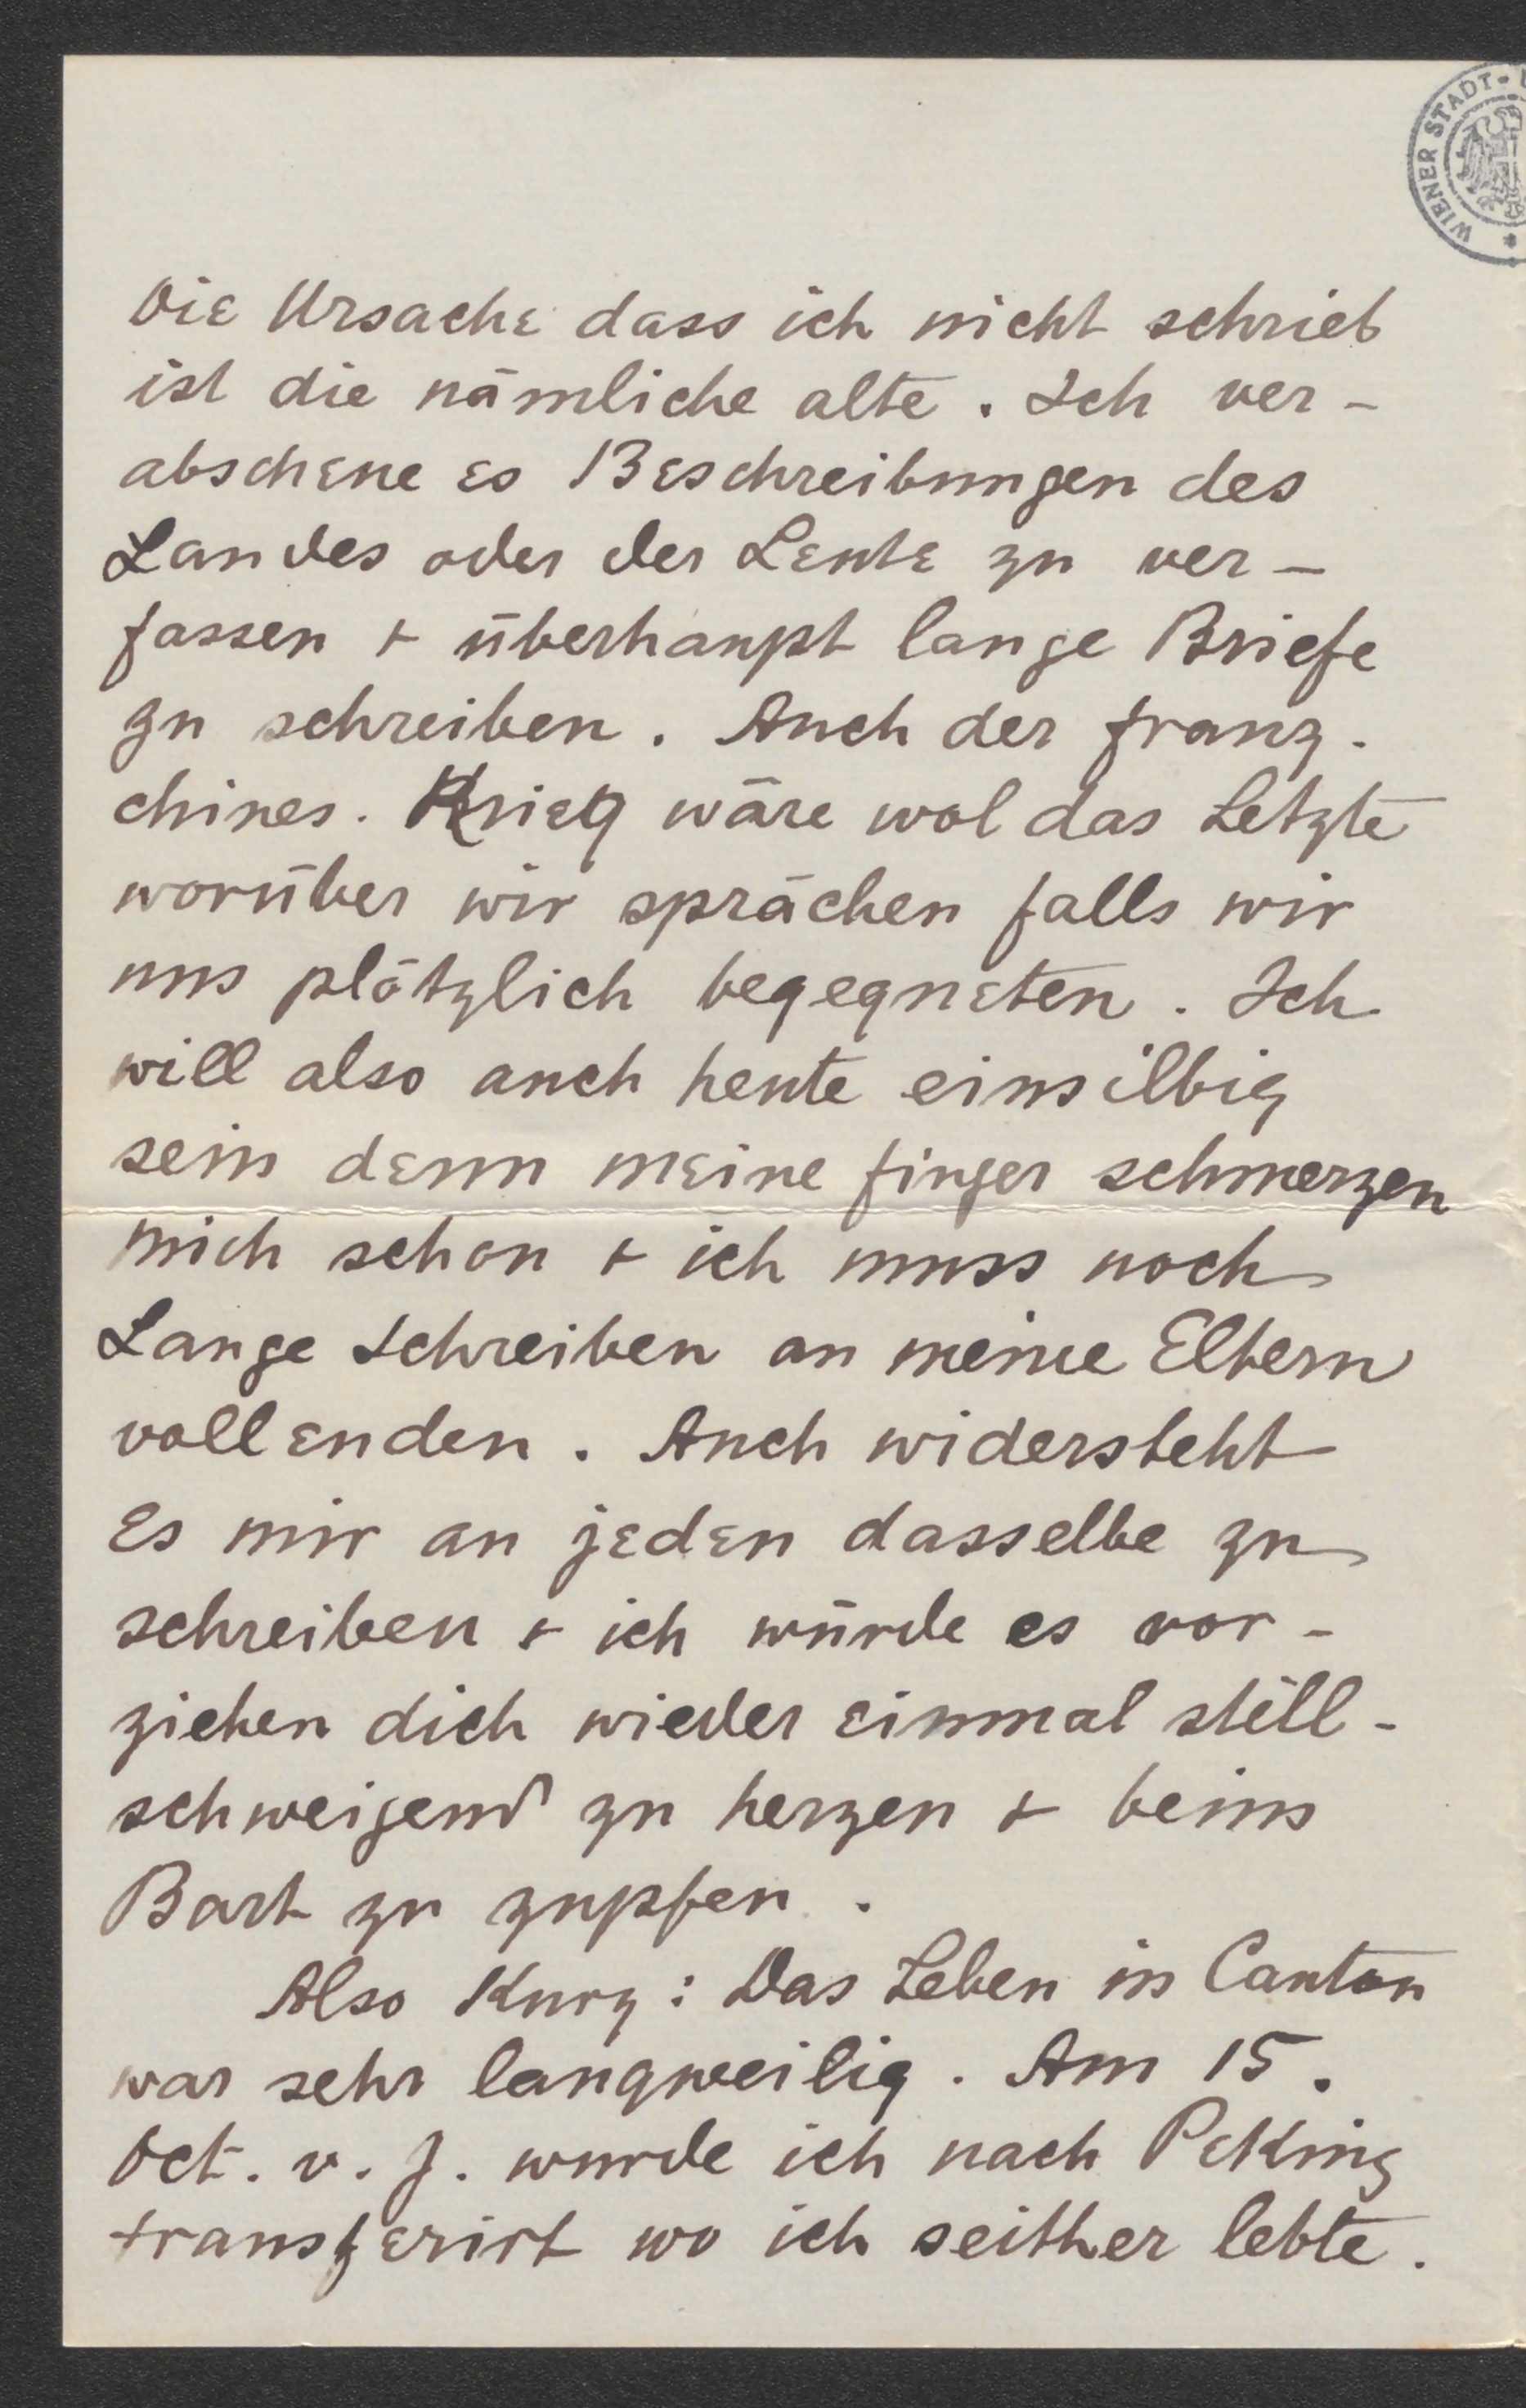 WIENER STADT-
Die Ursache dass ich nicht schrieb
ist die nämliche alte. Ich ver-
abscheue es Beschreibungen des
Landes oder der Leute zu ver-
fassen + überhaupt lange Briefe
zu schreiben. Auch der franz.
chines. Krieg wäre wol das Letzte
worüber wir sprächen falls wir
uns plötzlich begegneten. Ich
will also auch heute einsilbig
sein denn meine finger schmerzen
mich schon + ich muss noch
Lange Schreiben an meine Eltern
vollenden. Auch widersteht
es mir an jeden dasselbe zu
schreiben + ich würde es vor-
ziehen dich wieder einmal still-
schweigend zu herzen + beim
Bart zu zupfen.
Also Kurz: Das Leben in Canton
war sehr langweilig. Am 15.
Oct. v. J. wurde ich nach Peking
transferirt wo ich seither lebte.